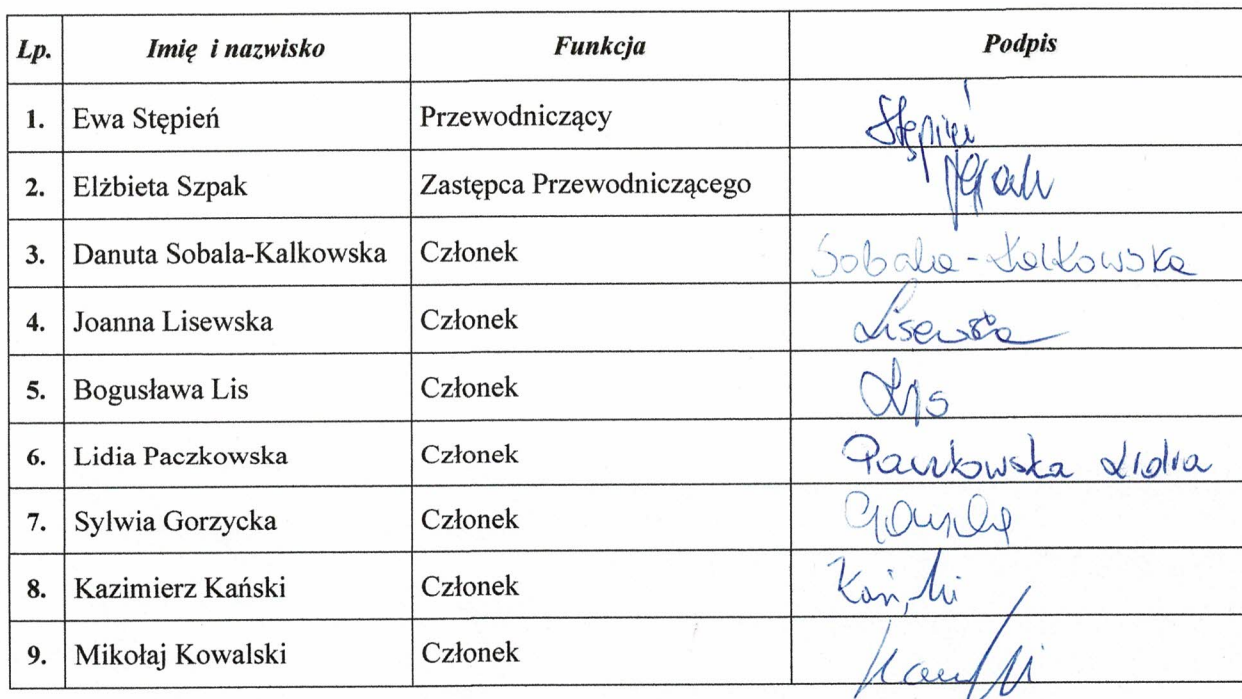 Lp. Imię i nazwisko Funkcja Podpis
1. Ewa Stępień Przewodniczący Stępień
2. Elżbieta Szpak Zastępca Przewodniczącego
3. Danuta Sobala-Kalkowska Członek Sobala-Kalkowska
4. Joanna Lisewska Członek Lisewska
5. Bogusława Lis Członek Lis
6. Lidia Paczkowska Członek Paczkowska Lidia
7. Sylwia Gorzycka Członek
8. Kazimierz Kański Członek Kański
9. Mikołaj Kowalski Członek